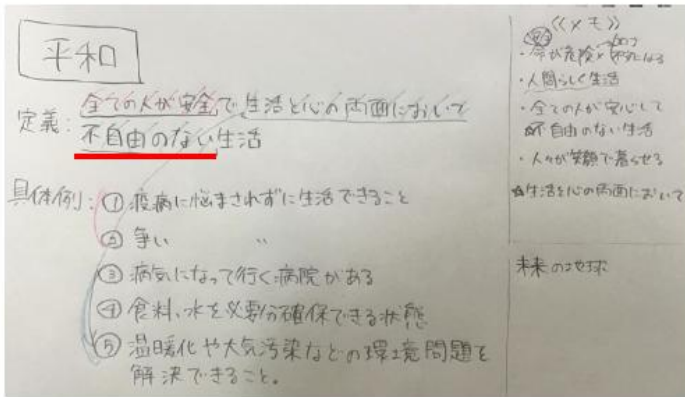 平和
定義：全ての人が安全で、生活と心の両面において
不自由のない生活
具体例：① 疫病に悩まされずに生活できること
② 争い 〃
③ 病気になって行く病院がある
④ 食料、水を必要分確保できる状態
⑤ 温暖化や大気汚染などの環境問題を
解決できること。
《メモ》
・命が危険
・人間らしく生活
・全ての人が安心して
不自由のない生活
・人々が笑顔で暮らせる
☆生活と心の両面において
未来の地球